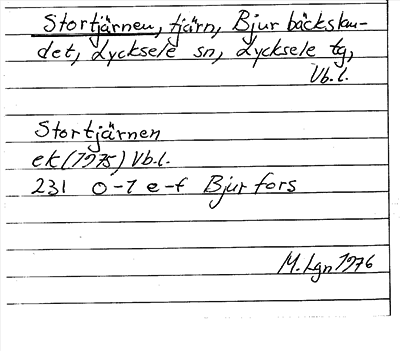 Stortjärnen, tjärn, Bjurbäckslan-
det, Lycksele sn, Lycksele tg,
Vb.l.
Stortjärnen
ek (1975) Vb.l.
231 0-1 e-f Bjurfors
M.Lgn 1976